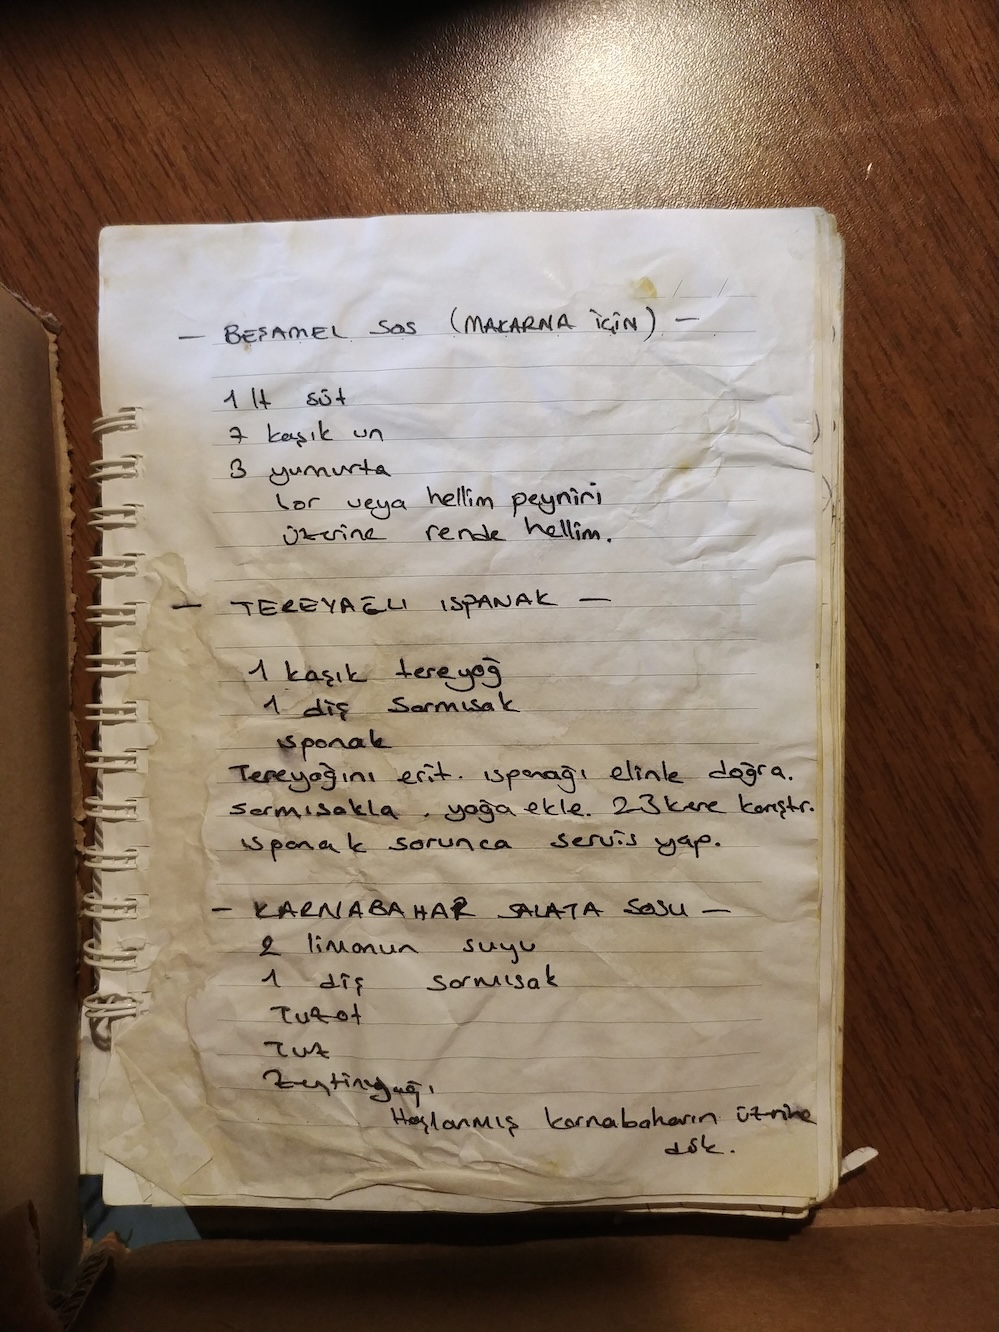 - BEŞAMEL SOS (MAKARNA İÇİN) -
1 lt süt
7 kaşık un
3 yumurta
lor veya hellim peyniri
üzerine rende hellim.
- TEREYAĞLI ISPANAK -
1 kaşık tereyağ
1 diş sarmısak
ıspanak
Tereyağını erit. ıspanağı elinle doğra.
sarmısakla, yağa ekle. 2 3 kere karıştır.
ıspanak sarunca servis yap.
- KARNABAHAR SALATA SOSU -
2 limonun suyu
1 diş sarmısak
Tuzot
Tuz
Zeytinyağı
Haşlanmış karnabaharın üzerine
dök.